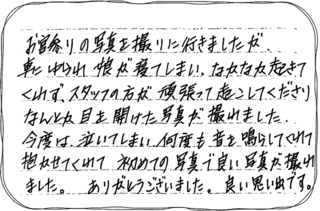 お宮参りの写真を撮りに行きましたが、
車にゆられ娘が寝てしまい、なかなか起きて
くれず、スタッフの方が頑張って起こしてくださり
なんとか目を開けた写真が撮れました。
今度は、泣いてしまい何度も音を鳴らしてくれて
抱かせてくれて 初めての写真で良い写真が撮れ
ました。 ありがとうございました。良い思い出です。